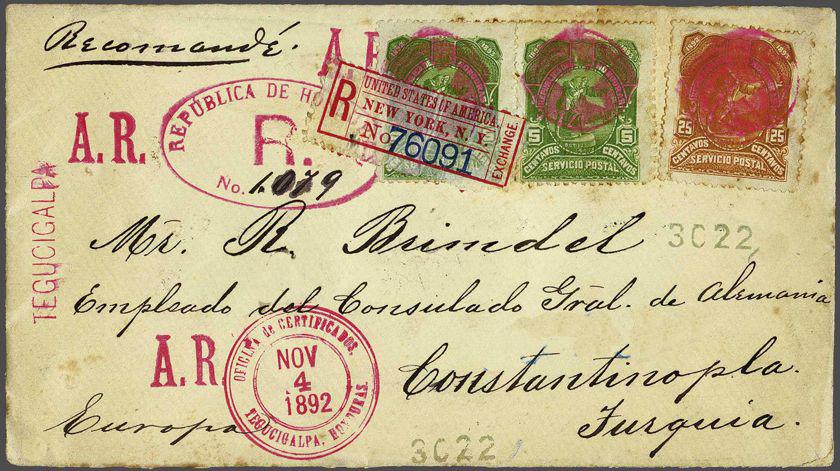 Recomandé.
A.R.
A.R.
REPÚBLICA DE HO
R.
No. 1.079
R
UNITED STATES OF AMERICA.
NEW YORK, N. Y.
No 76091
EXCHANGE.
5 5
CENTAVOS CENTAVOS
SERVICIO POSTAL
25 25
CENTAVOS CENTAVOS
SERVICIO POSTAL
TEGUCIGALPA
Mr. R. Brimdel
3022
Empleado del Consulado Gral. de Alemania
A.R.
OFICINA de CERTIFICADOS.
NOV
4
1892
TEGUCIGALPA, HONDURAS.
Constantinopla.
Europa
Turquia.
3022